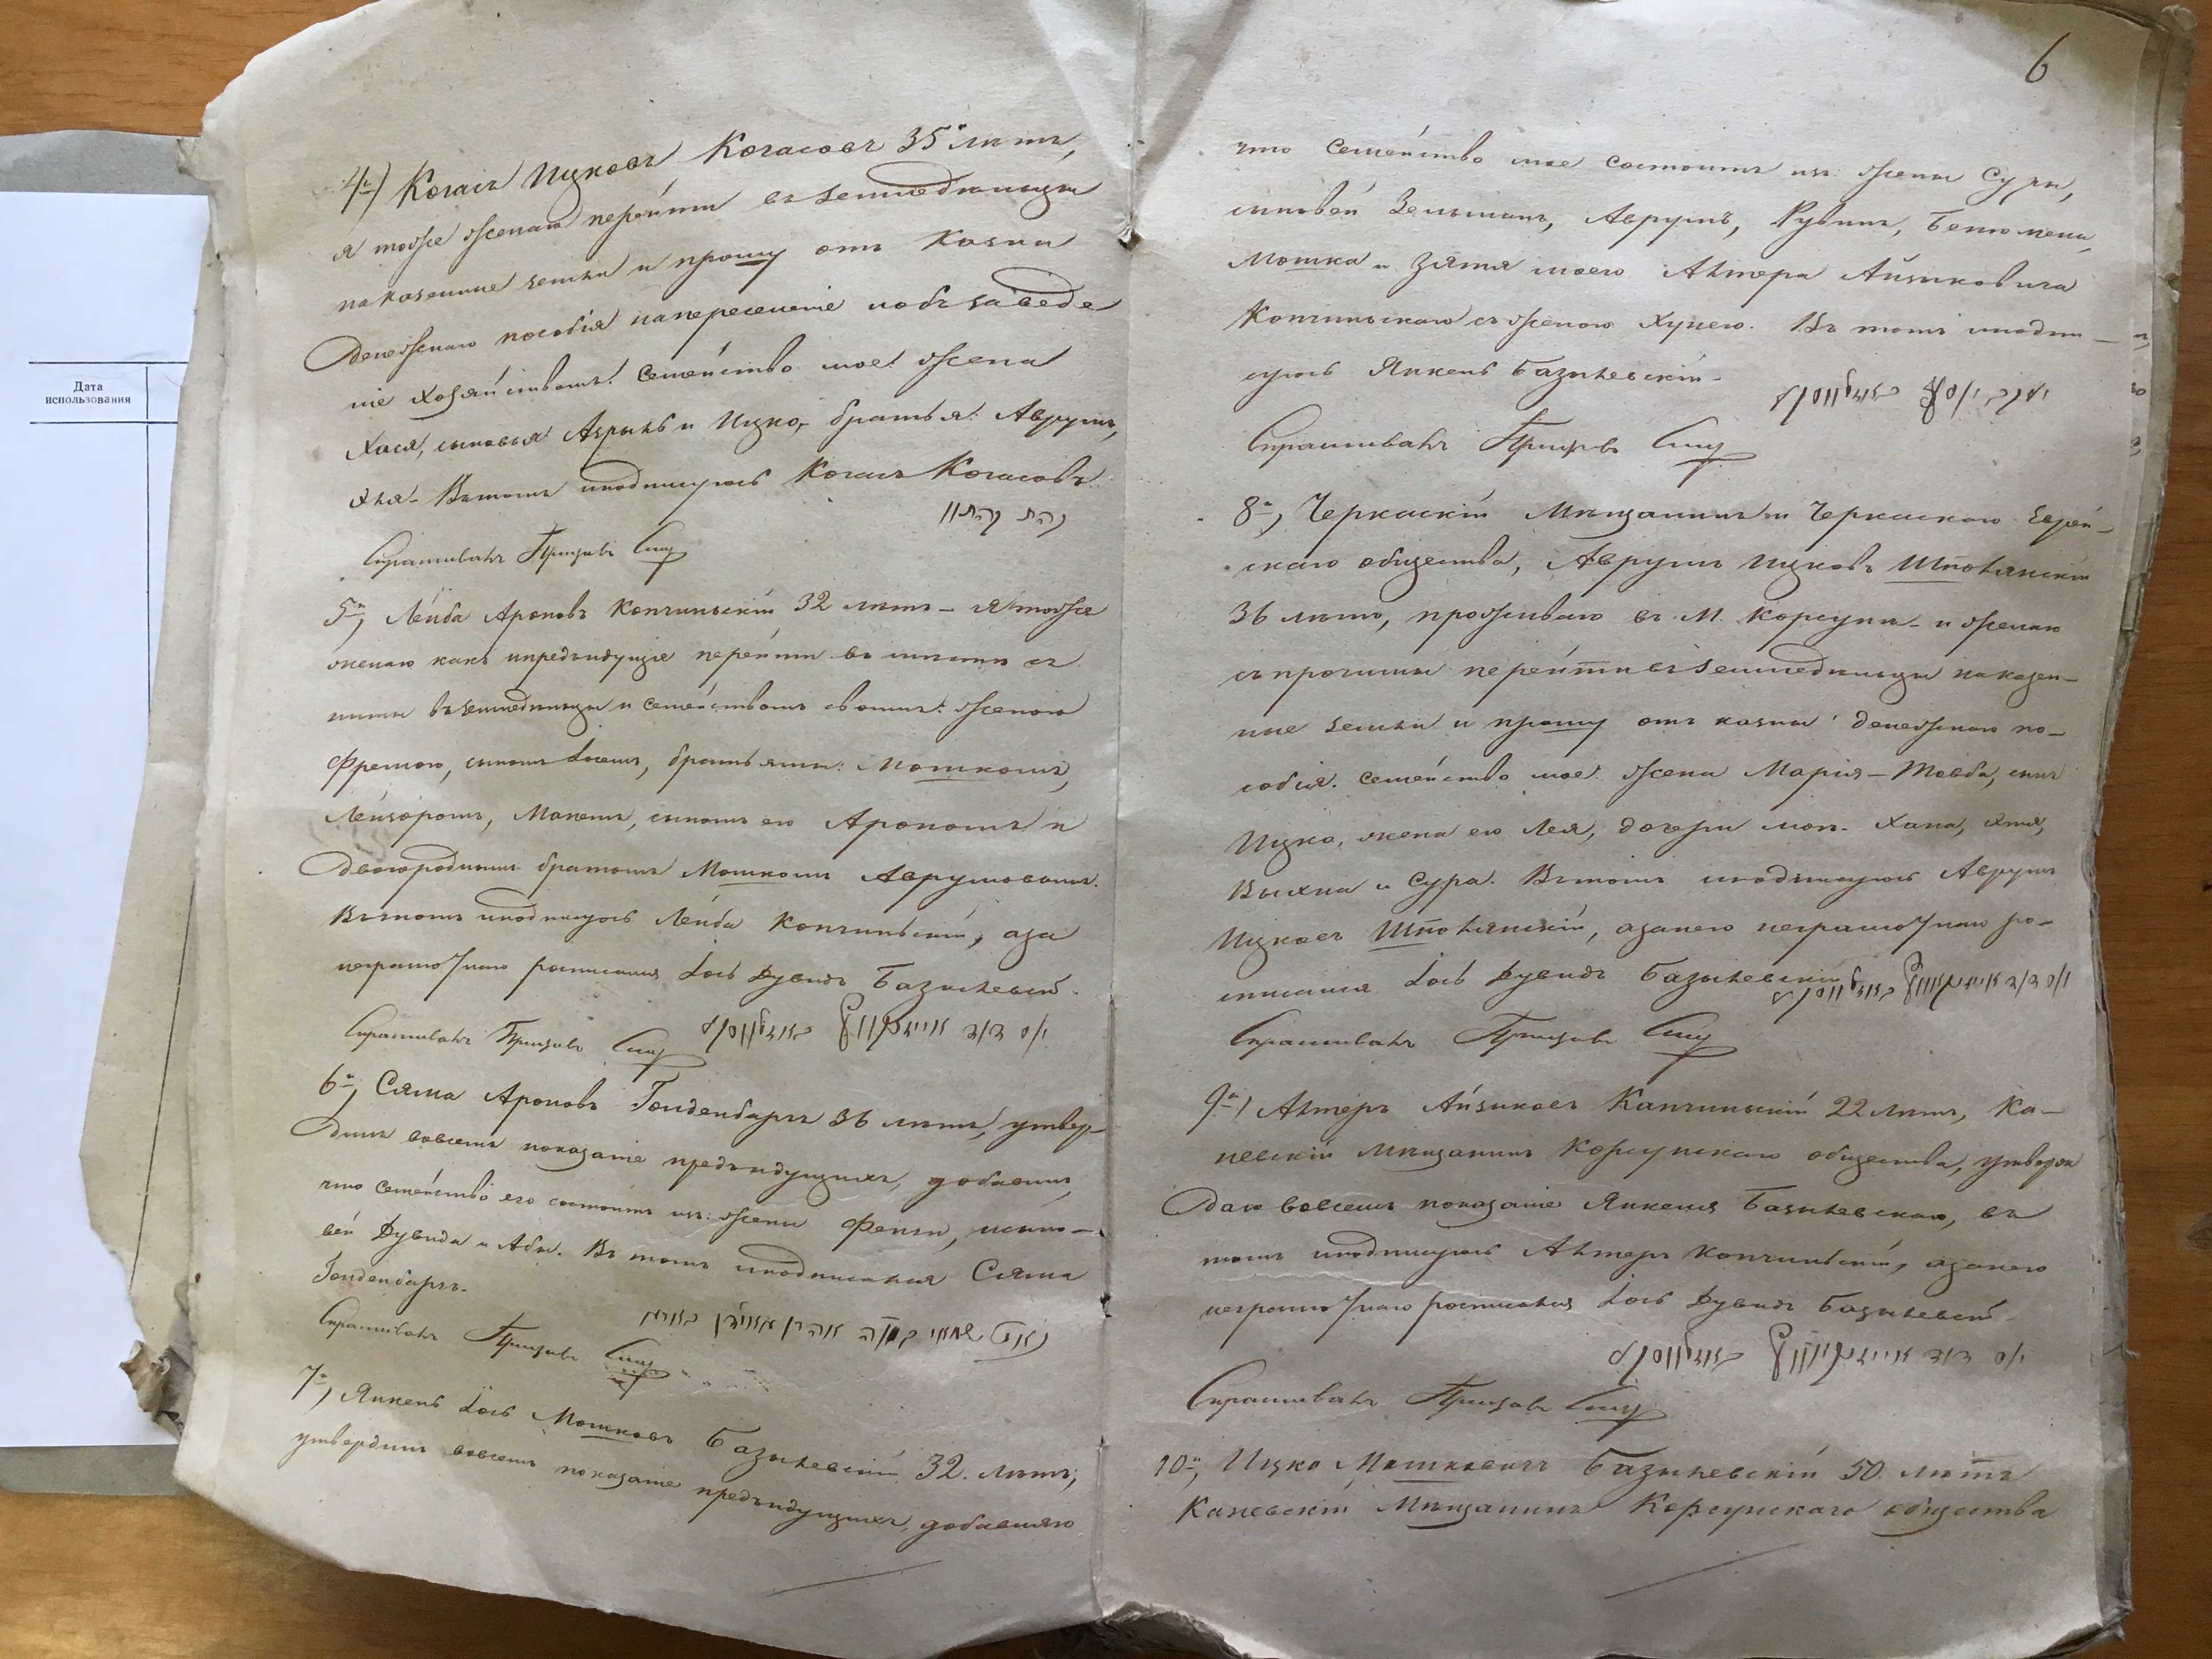 Дата
использования
4й) Когасъ Ицковъ Когасовъ 35 лѣтъ,
я тоже желаю перейти въ земледѣльцы
на казенные земли и прошу отъ казны
денежнаго пособія на переселеніе и обзаведе
ніе хозяйствомъ. Семейство мое: жена
Хася, сыновья и Ицко, братья: Аврумъ,
Въ томъ и подписуюсь Когасъ Когасовъ
Спрашивалъ Приставъ
5й, Лейба Ароновъ Копчинскій 32 лѣтъ – я тоже
желаю какъ и предъидущіе перейти въ мѣстѣ съ
ними въ земледѣльцы и семействомъ своимъ: женою
Фремою, сыномъ Іосемъ, братьями: Мошкомъ,
Лейзоромъ, Манемъ, сыномъ его Арономъ и
двоюроднымъ братомъ Мошкомъ Аврумовымъ.
Въ томъ и подписуюсь Лейба Копчинскій, а за
неграмотнаго росписался Іось Дувидъ Базилевскій.
יוס דוד
Спрашивалъ Приставъ
6й, Сяма Ароновъ Гольденбергъ 36 лѣтъ, утвер-
дилъ вовсемъ показаніе предъидущихъ, добавилъ,
что семейство его состоитъ изъ: жены Фейги, и сыно-
вей Дувида и Абы. Въ томъ и подписался Сяма
Гольденбергъ.
Спрашивалъ Приставъ
7й, Янкель Іось Мошковъ Базилевскій 32. лѣтъ,
утвердилъ вовсемъ показаніе предъидущихъ, добавляю
6
что Семейство мое состоитъ изъ жены Суры,
сыновей Зельмана, Аврума, Рувина, Бенюмена,
Мошка и Зятя моего Альтера Айзиковича
Копчинскаго съ женою Хунею. Въ томъ и подпи-
суюсь Янкель Базилевскій.
Спрашивалъ Приставъ
8й, Черкаскій Мѣщанинъ и Черкаскаго Еврей-
скаго общества, Аврумъ Ицковъ Шполянскій
36 лѣтъ, проживаю въ М. Корсунѣ – и желаю
съ прочими перейти въ земледѣльцы на казен-
ные земли и прошу отъ казны денежнаго по-
собія. Семейство мое: жена Марія–Товба, сынъ
Ицко, жена его Лея, дочери мои: Хана, Этя,
Выхна и Сура. Въ томъ и подписуюсь Аврумъ
Ицковъ Шполянскій, а за него неграмотнаго ро-
списался Іось Дувидъ Базилевскій
יוס דוד
Спрашивалъ Приставъ
9й, Альтеръ Айзиковъ Капчинскій 22 лѣтъ, Ка-
невскій мѣщанинъ Корсунскаго общества, утверж
даю вовсемъ показаніе Янкеля Базилевскаго, въ
томъ и подписуюсь Альтеръ Копчинскій, а за него
неграмотнаго росписался Іось Дувидъ Базилевскій
יוס דוד
Спрашивалъ Приставъ
10й, Ицко Мошковичъ Базилевскій 50. лѣтъ
Каневскій Мѣщанинъ Корсунскаго общества